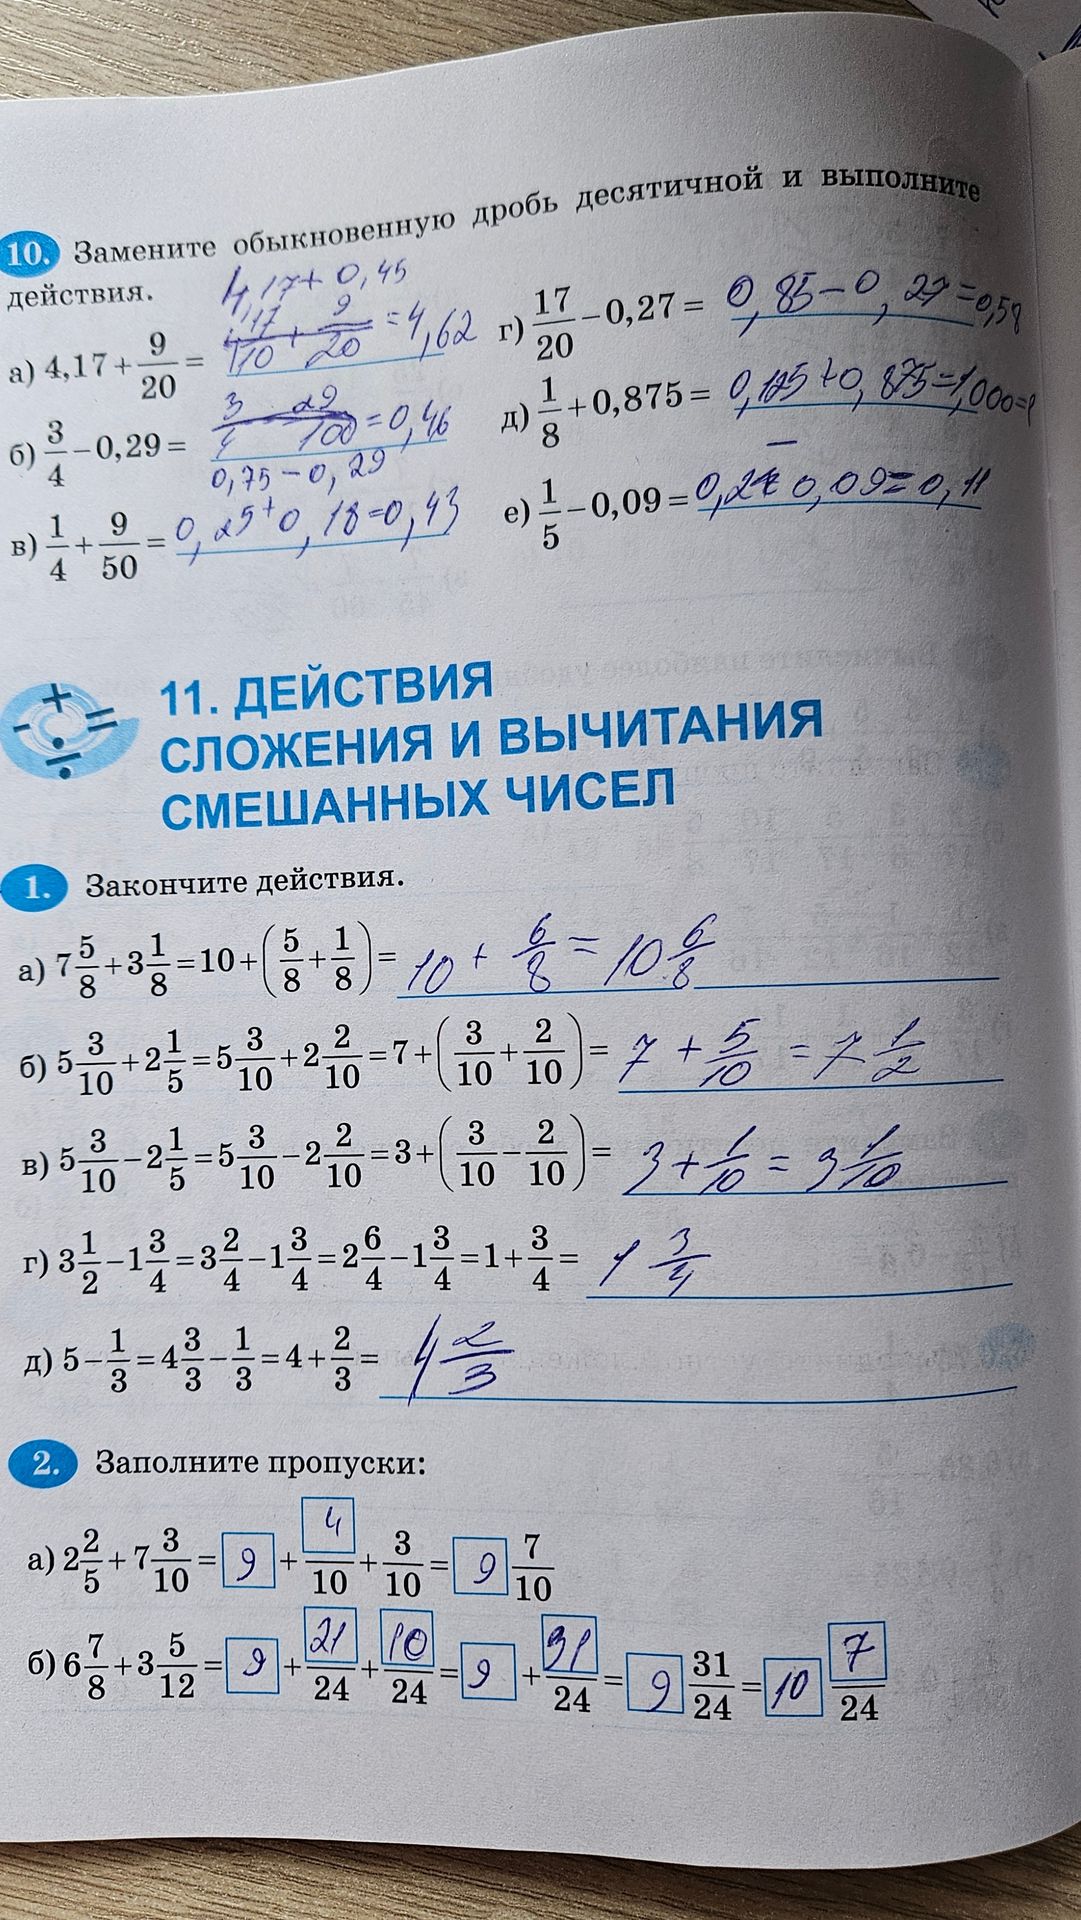 10. Замените обыкновенную дробь десятичной и выполните
действия.
4,17 + 0,45
а) 4,17 + 9/20 = 4,17/10 + 9/20 = 4,62
б) 3/4 − 0,29 = 3/4 − 29/100 = 0,46
0,75 − 0,29
в) 1/4 + 9/50 = 0,25 + 0,18 = 0,43
г) 17/20 − 0,27 = 0,85 − 0,27 = 0,58
д) 1/8 + 0,875 = 0,125 + 0,875 = 1,000 =
е) 1/5 − 0,09 = 0,2 − 0,09 = 0,11
11. ДЕЙСТВИЯ
СЛОЖЕНИЯ И ВЫЧИТАНИЯ
СМЕШАННЫХ ЧИСЕЛ
1. Закончите действия.
а) 7 5/8 + 3 1/8 = 10 + (5/8 + 1/8) = 10 + 6/8 = 10 6/8
б) 5 3/10 + 2 1/5 = 5 3/10 + 2 2/10 = 7 + (3/10 + 2/10) = 7 + 5/10 = 7 1/2
в) 5 3/10 − 2 1/5 = 5 3/10 − 2 2/10 = 3 + (3/10 − 2/10) = 3 + 1/10 = 3 1/10
г) 3 1/2 − 1 3/4 = 3 2/4 − 1 3/4 = 2 6/4 − 1 3/4 = 1 + 3/4 = 1 3/4
д) 5 − 1/3 = 4 3/3 − 1/3 = 4 + 2/3 = 4 2/3
2. Заполните пропуски:
а) 2 2/5 + 7 3/10 = 9 + 4/10 + 3/10 = 9 7/10
б) 6 7/8 + 3 5/12 = 9 + 21/24 + 10/24 = 9 + 31/24 = 9 31/24 = 10 7/24